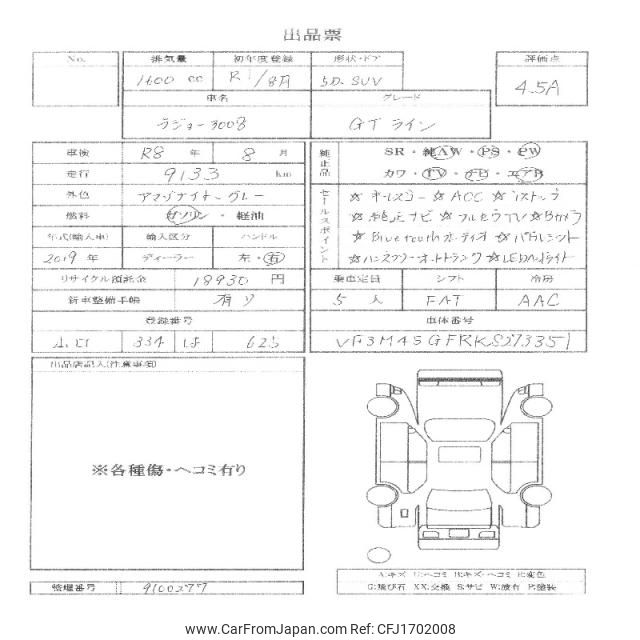 出品票
No. 排気量 初年度登録 形状・ドア 評価点
1600 cc R1/8月 5D. SUV 4.5A
車名 グレード
プジョー3008 GTライン
車検 R8 年 8 月
走行 9133 km
外色 アマゾナイト グレー
燃料 ガソリン ・ 軽油
年式(輸入車) 輸入区分 ハンドル
2019 年 ディーラー 左・右
リサイクル預託金 18930 円
新車整備手帳 有り
登録番号
334 は 625
純正品 SR ・ 純AW ・ PS ・ PW
カワ ・ TV ・ ナビ ・ エアB
セールスポイント ☆キーレスゴー ☆ACC ☆iストップ
☆純正ナビ ☆フルセグTV ☆Bカメラ
☆Bluetoothオーディオ ☆パドルシフト
☆ハンズフリーオートトランク ☆LEDヘッドライト
乗車定員 シフト 冷房
5 人 FAT AAC
車体番号
VF3M45GFRKS273351
出品店記入(注意事項)
※各種傷・ヘコミ有り
管理番号 9100277
A:キズ U:ヘコミ B:キズ・ヘコミ E:変色
G:飛び石 XX:交換 S:サビ W:波有 P:塗装
www.CarFromJapan.com Ref: CFJ1702008